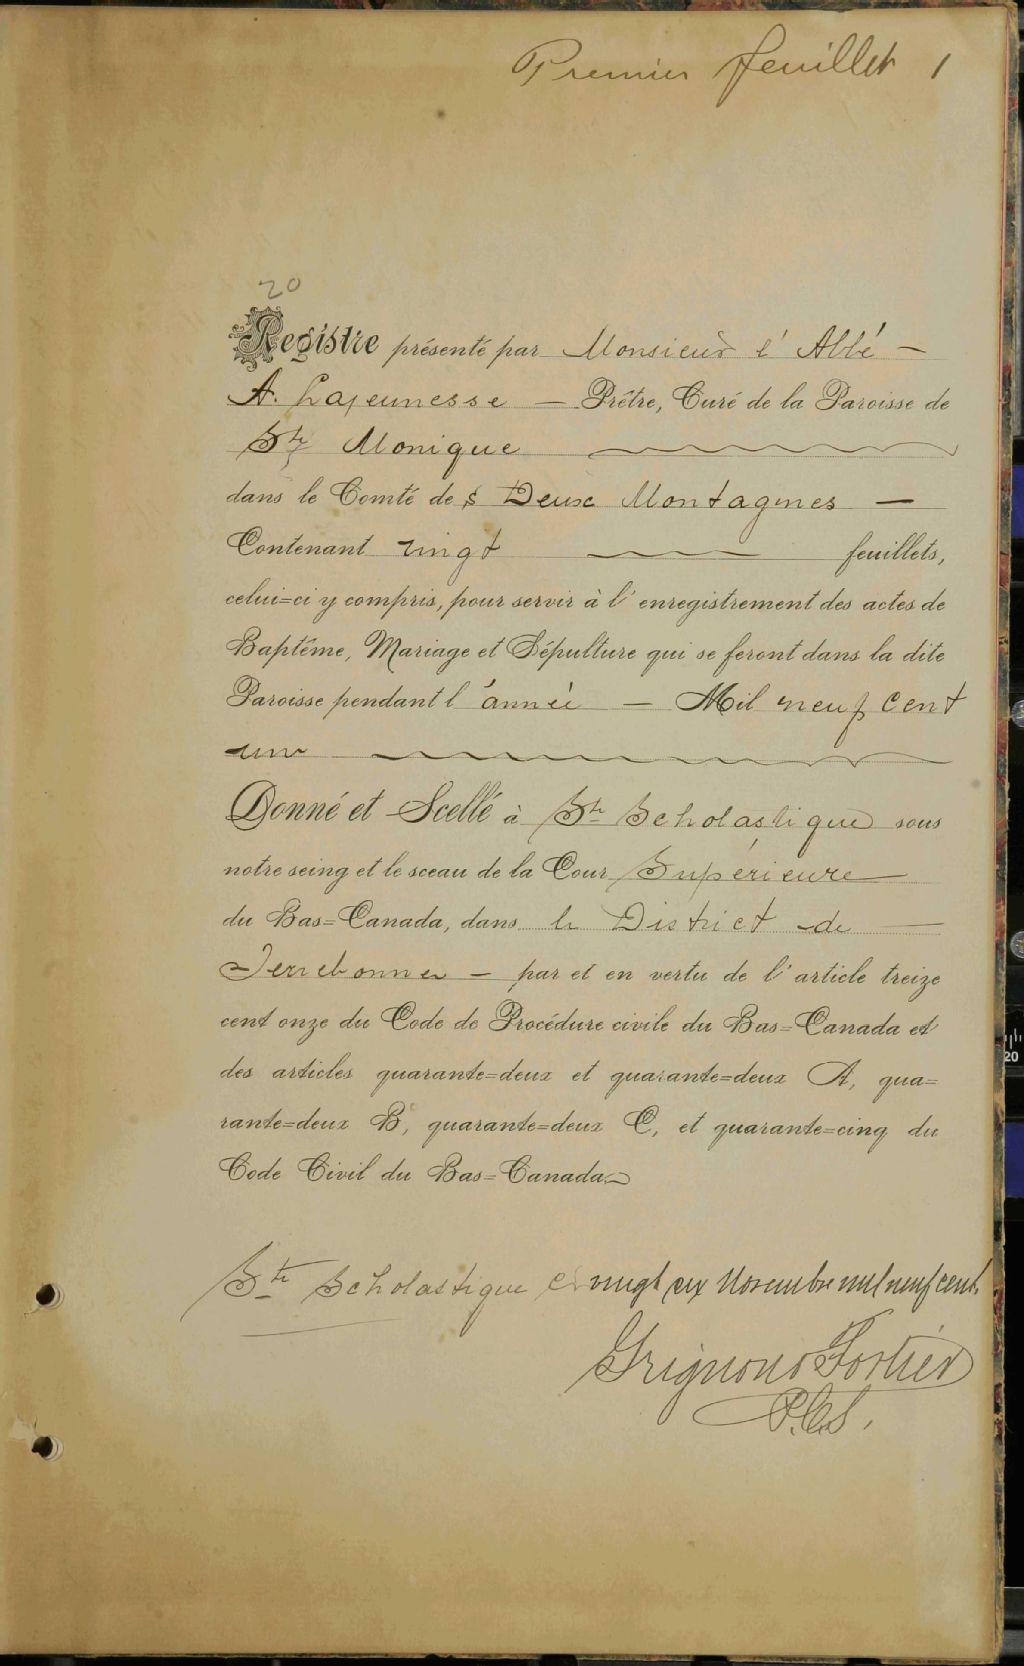 Premier feuillet 1
20
Registre présenté par Monsieur l'Abbé —
A. Lajeunesse — Prêtre, Curé de la Paroisse de
Ste Monique
dans le Comté des Deux Montagnes —
Contenant vingt — feuillets,
celui=ci y compris, pour servir à l'enregistrement des actes de
Baptême, Mariage et Sépulture qui se feront dans la dite
Paroisse pendant l'année — Mil neuf cent
un
Donné et Scellé à Ste Scholastique sous
notre seing et le sceau de la Cour Supérieure
du Bas=Canada, dans le District de —
Terrebonne — par et en vertu de l'article treize
cent onze du Code de Procédure civile du Bas=Canada et
des articles quarante=deux et quarante=deux A, qua=
rante=deux B, quarante=deux C, et quarante=cinq du
Code Civil du Bas=Canada.
Ste Scholastique ce vingt six Novembre mil neuf cent.
Grignon & Fortier
P.C.S.